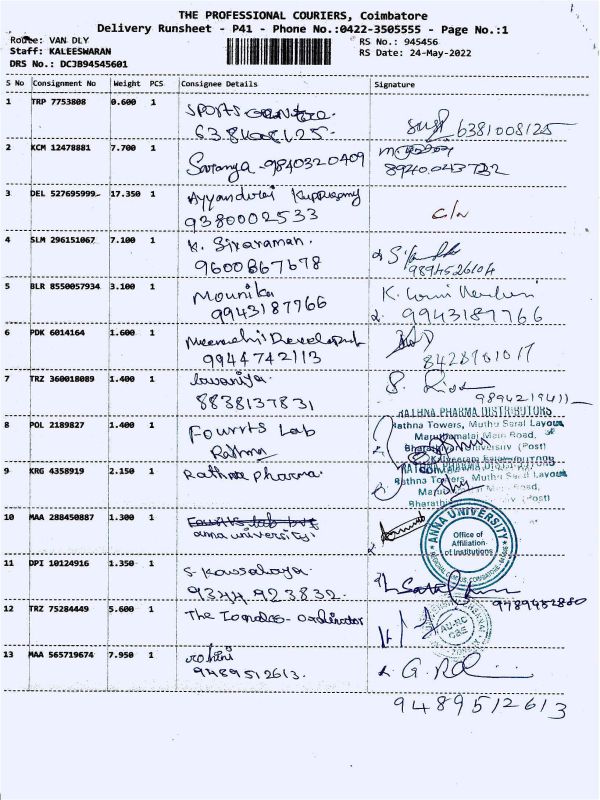 THE PROFESSIONAL COURIERS, Coimbatore
Delivery Runsheet - P41 - Phone No.:0422-3505555 - Page No.:1
Route: VAN DLY
Staff: KALEESWARAN
DRS No.: DCJB94545601
RS No.: 945456
RS Date: 24-May-2022
S No Consignment No Weight PCS Consignee Details Signature
1 TRP 7753808 0.600 1 SPORTS
6381008125
2 KCM 12478881 7.700 1 Saranya - 9840320409
8940043732
3 DEL 527695999 17.350 1 Ayyandurai Kuppusamy
9380002533
4 SLM 296151067 7.100 1 K. Sivaraman.
9600867678
9894526104
5 BLR 8550057934 3.100 1 Mounika
9943187766
9943187766
6 PDK 6014164 1.600 1
9944742113
8428961017
7 TRZ 360018089 1.400 1 Lavanya.
8838137831
9894219411
8 POL 2189827 1.400 1 Fourrts Lab
Rathna
RATHNA PHARMA DISTRIBUTORS
Rathna Towers, Muthu Saral Layout
Maruthamalai Main Road,
Bharathiar University (Post)
9 KRG 4358919 2.150 1 Rathna pharma.
RATHNA PHARMA DISTRIBUTORS
Rathna Towers, Muthu Saral Layout
10 MAA 288450887 1.300 1 Fourrts lab pvt
anna university.
ANNA UNIVERSITY
Office of
Affiliation
of Institutions
11 DPI 10124916 1.350 1 S. Kowsalaya.
9344 923832.
9489452880
12 TRZ 75284449 5.600 1 The
13 MAA 565719674 7.950 1 rohini
9489512613.
9489512613